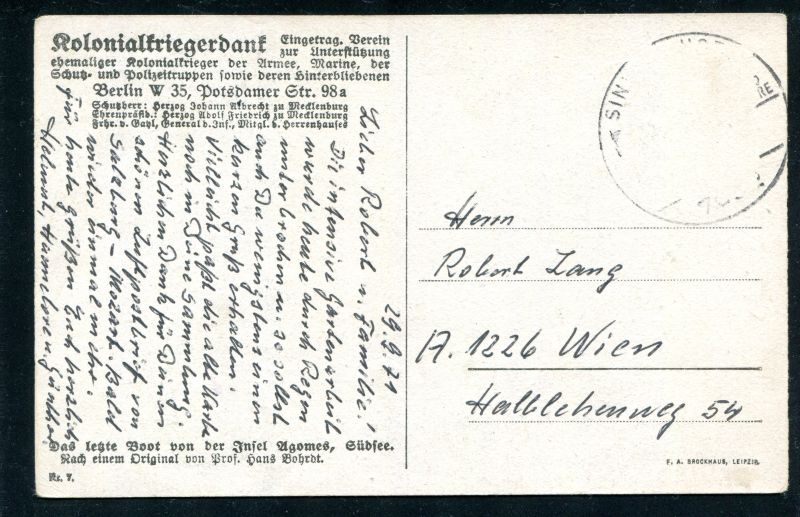 Kolonialkriegerdank Eingetrag. Verein
zur Unterstützung
ehemaliger Kolonialkrieger der Armee, Marine, der
Schutz- und Polizeitruppen sowie deren Hinterbliebenen
Berlin W 35, Potsdamer Str. 98a
Schutzherr: Herzog Johann Albrecht zu Mecklenburg
Ehrenpräsid.: Herzog Adolf Friedrich zu Mecklenburg
Frhr. v. Gayl, General d. Inf., Mitgl. d. Herrenhauses
29.9.71
Lieber Robert u. Familie!
Die intensive Gartenarbeit
wurde heute durch Regen
unterbrochen u. so sollst
auch Du wenigstens einen
kurzen Gruß erhalten.
Vielleicht paßt die alte Karte
noch in Deine Sammlung.
Herzlichen Dank für Deinen
schönen Luftpostbrief von
Salzburg – Mozart. Bald
wieder einmal mehr.
Für heute grüßen Euch herzlich
Helmut, Hannelore u. Günther
Das letzte Boot von der Insel Agomes, Südsee.
Nach einem Original von Prof. Hans Bohrdt.
Nr. 7.
SIN
Herrn
Robert Lang
A. 1226 Wien
Halblehenweg 54
F. A. BROCKHAUS, LEIPZIG.